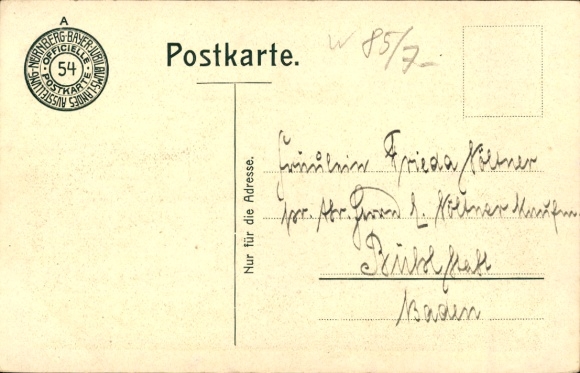 A
NÜRNBERG·BAYER·JUBILÄUMS·LANDES·AUSSTELLUNG
OFFICIELLE
54
POSTKARTE
Postkarte.
85/7
Nur für die Adresse.
Fräulein Frieda Költner
pr. Adr. Herrn L. Költner Kaufm.
Bühl Stadt
Baden